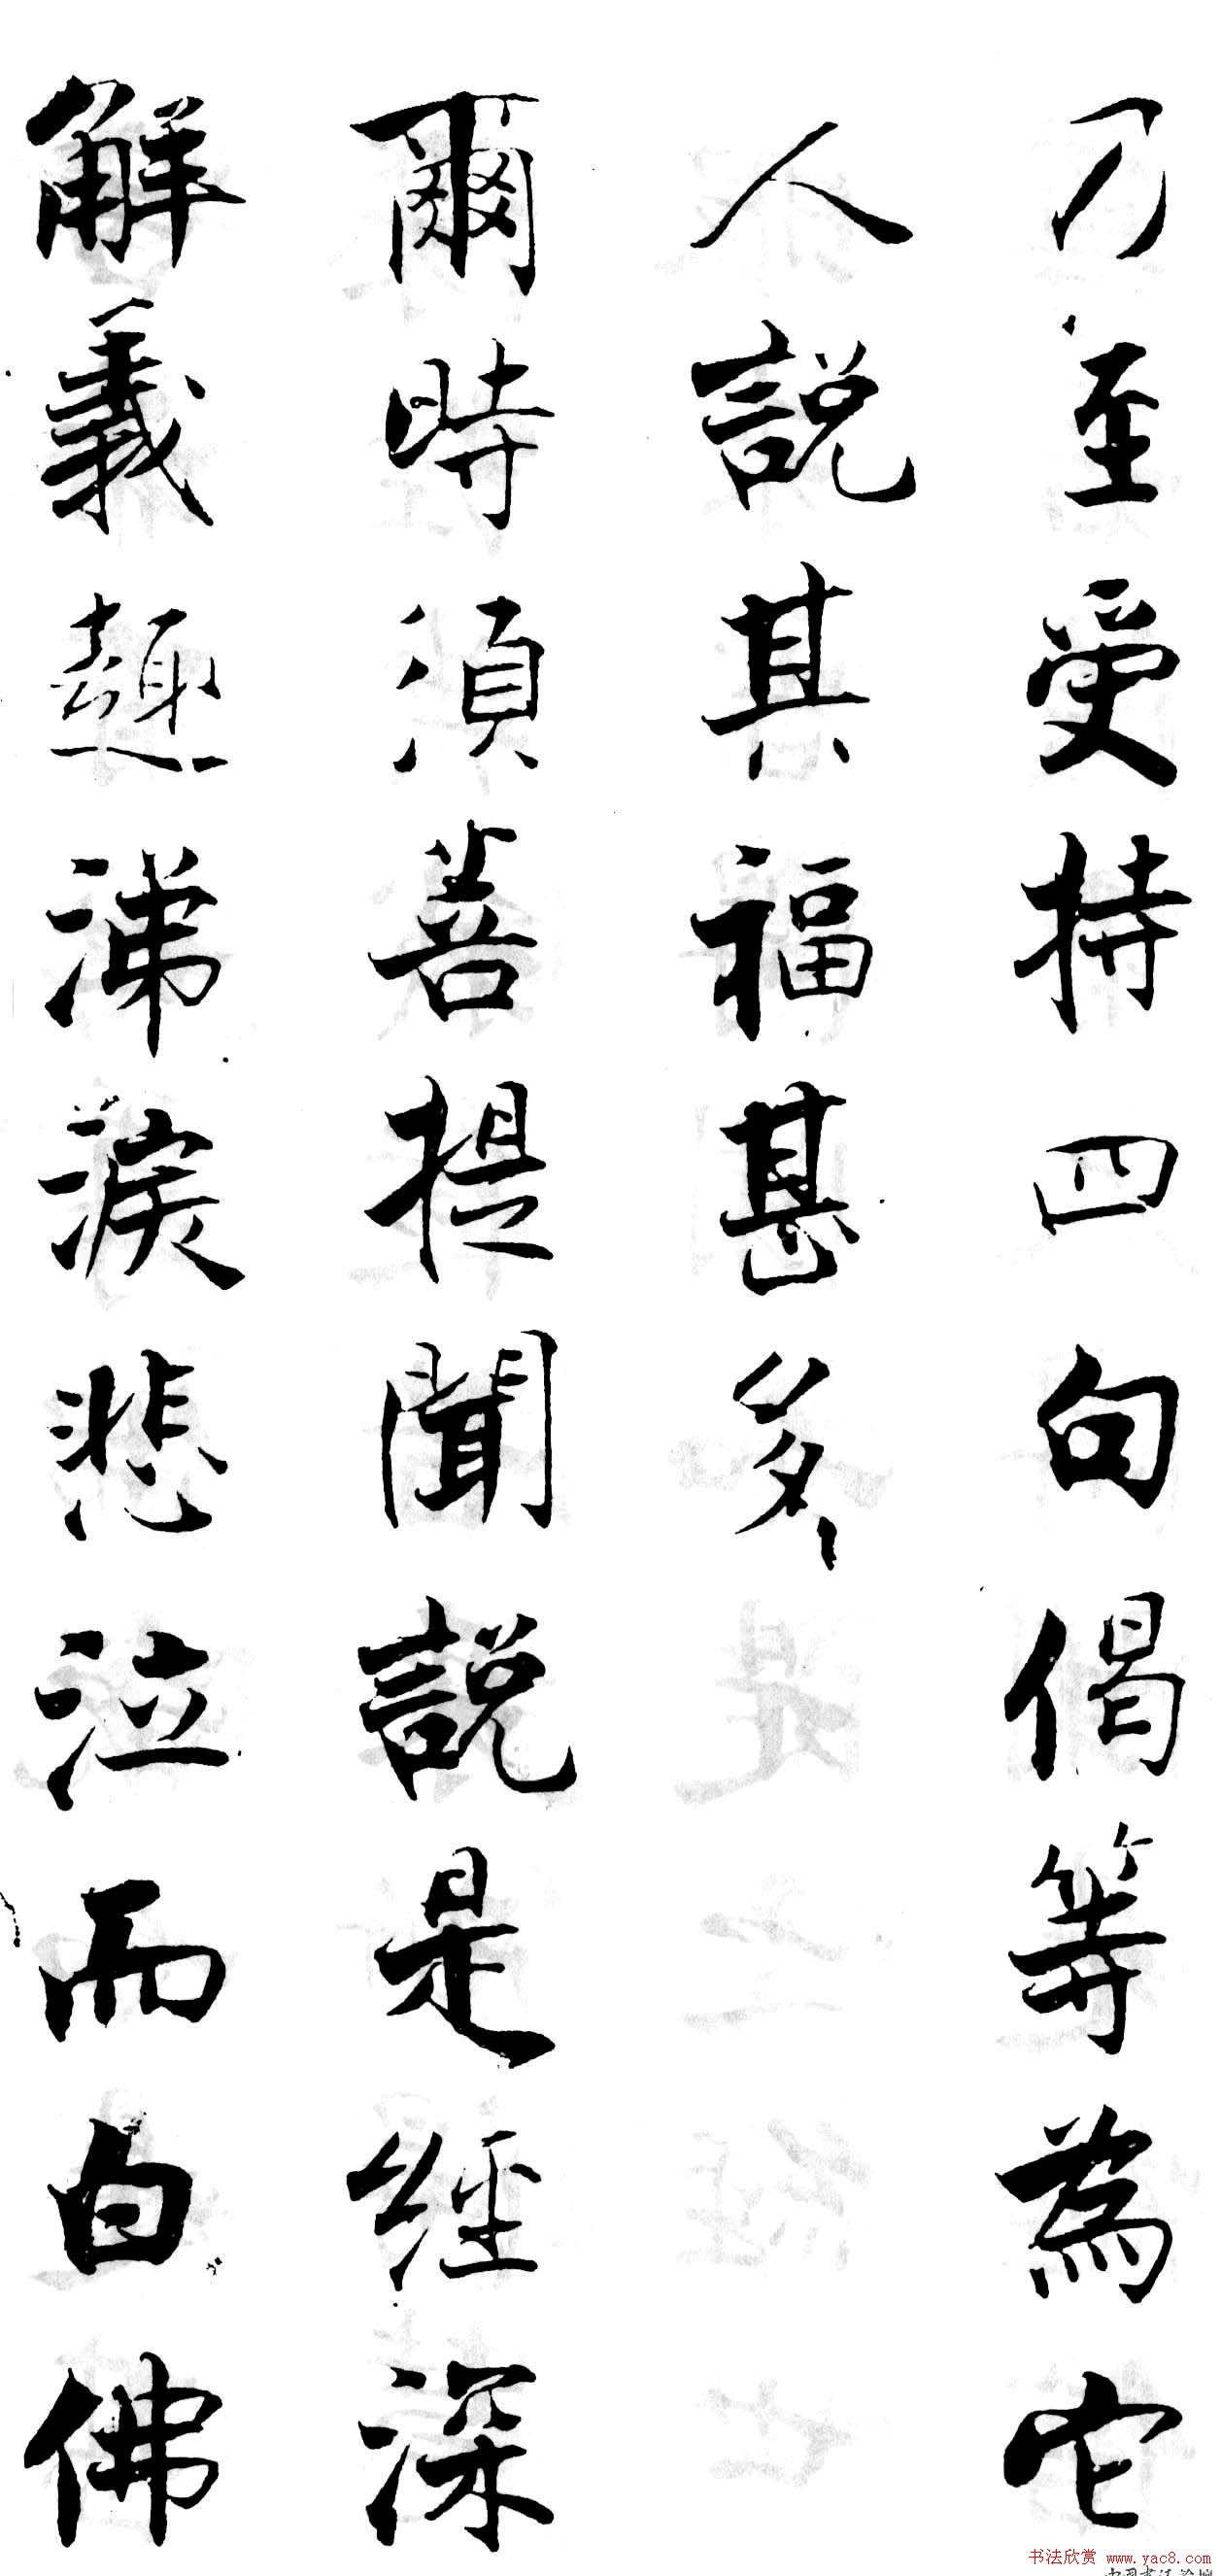 乃至受持四句偈等為它
人說其福甚多
爾時須菩提聞說是經深
解義趣涕淚悲泣而白佛
书法欣赏 www.yac8.com